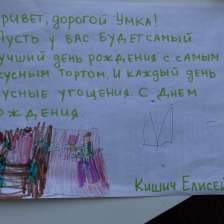 РИВЕТ, ДОРОГОЙ УМКА!
ПУСТЬ У ВАС БУДЕТ САМЫЙ
УЧШИЙ ДЕНЬ РОЖДЕНИЯ С САМЫМ
КУСНЫМ ТОРТОМ, И КАЖДЫЙ ДЕНЬ
КУСНЫЕ УГОЩЕНИЯ. С ДНЕМ
ОЖДЕНИЯ
КИШИЧ ЕЛИСЕЙ